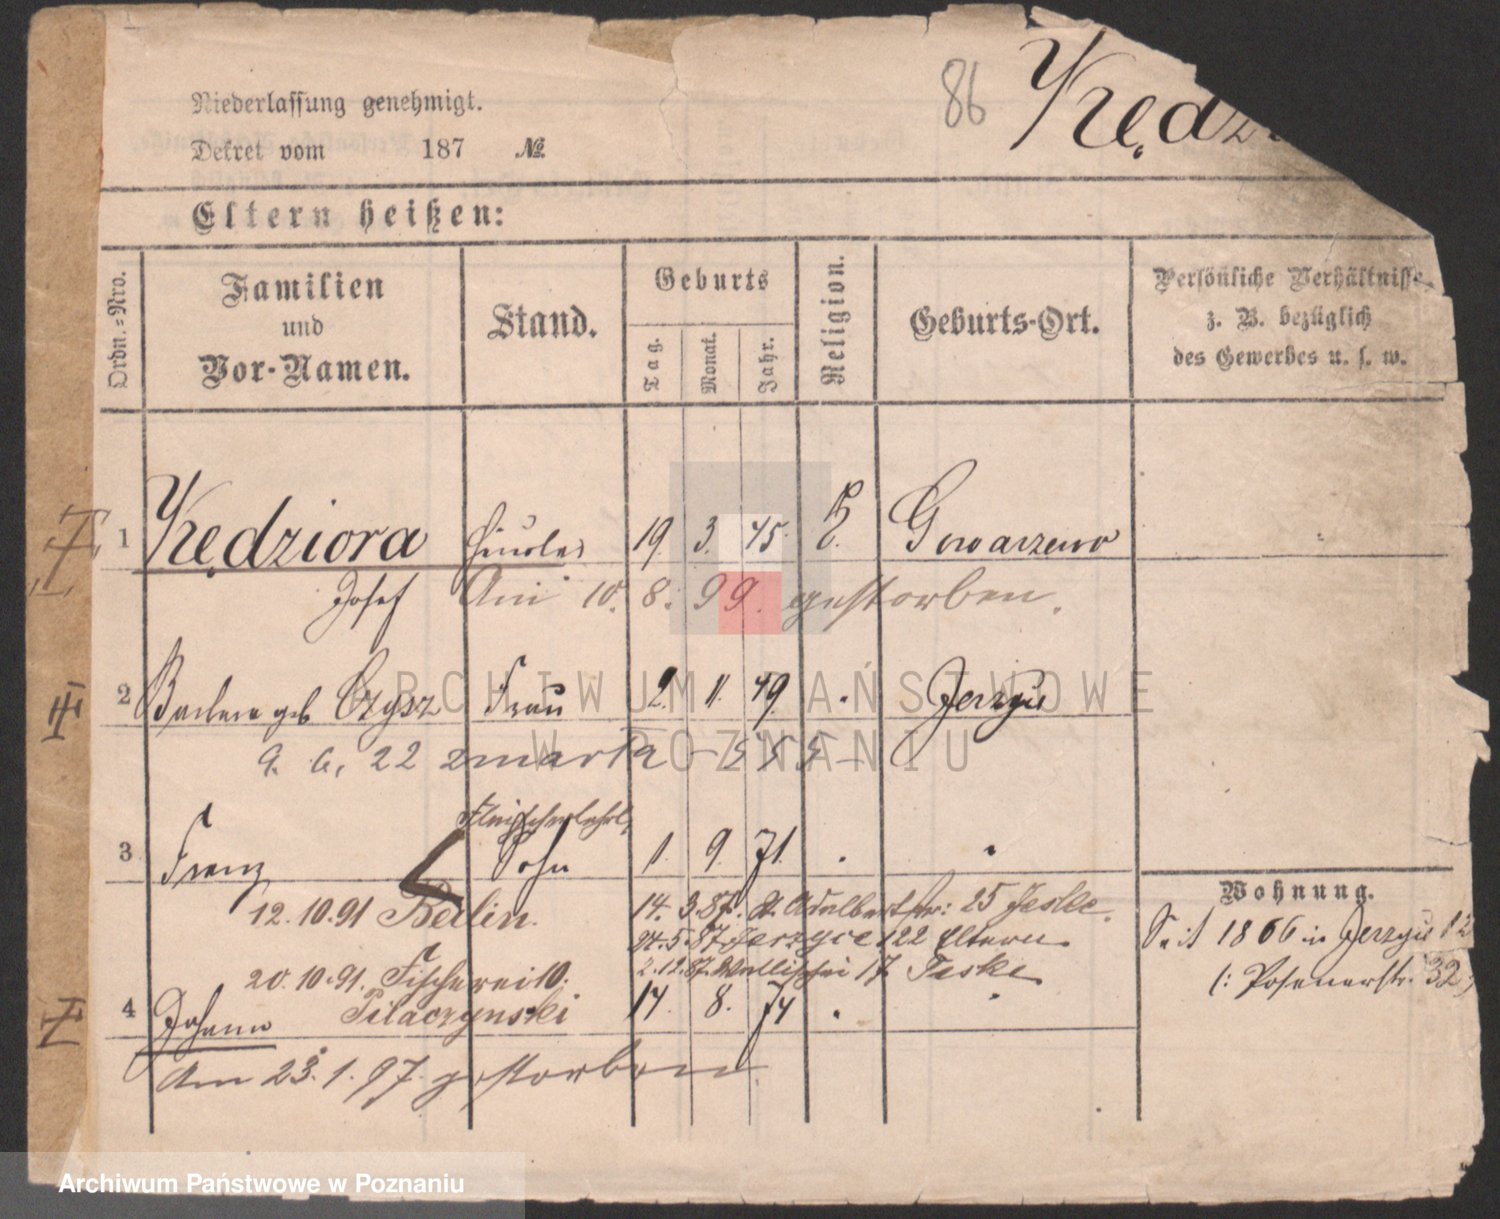 86 Kędzi
Niederlassung genehmigt.
Dekret vom 187 №
Eltern heißen:
Ordn.-Nro.
Familien
und
Vor-Namen.
Stand.
Geburts
Tag.
Monat.
Jahr.
Religion.
Geburts-Ort.
Persönliche Verhältnisse
z. B. bezüglich
des Gewerbes u. s. w.
1 Kędziora Häusler 19. 3. 45. Gowarzewo
Josef Am 10. 8. 99. gestorben.
2 Barbara geb Czysz Frau 2. 11. 49. Jerzyce
9. 6. 22 zmarła - 555 -
Fleischerlehrl.
3 Franz Sohn 1. 9. 71.
Wohnung.
12. 10. 91 Berlin. 14. 3. 87. St. Adalbertstr: 25 Jeske.
Seit 1866 in Jerzyce 12
24. 5. 87 Jerzyce 122 Eltern
20. 10. 91. Fischerei 10. 2. 12. 87. Wallischei 17 Jeske
(: Posenerstr. 32
4 Johann 14. 8. 74
Am 23. 1. 97. gestorben.
ARCHIWUM PAŃSTWOWE
W POZNANIU
Archiwum Państwowe w Poznaniu